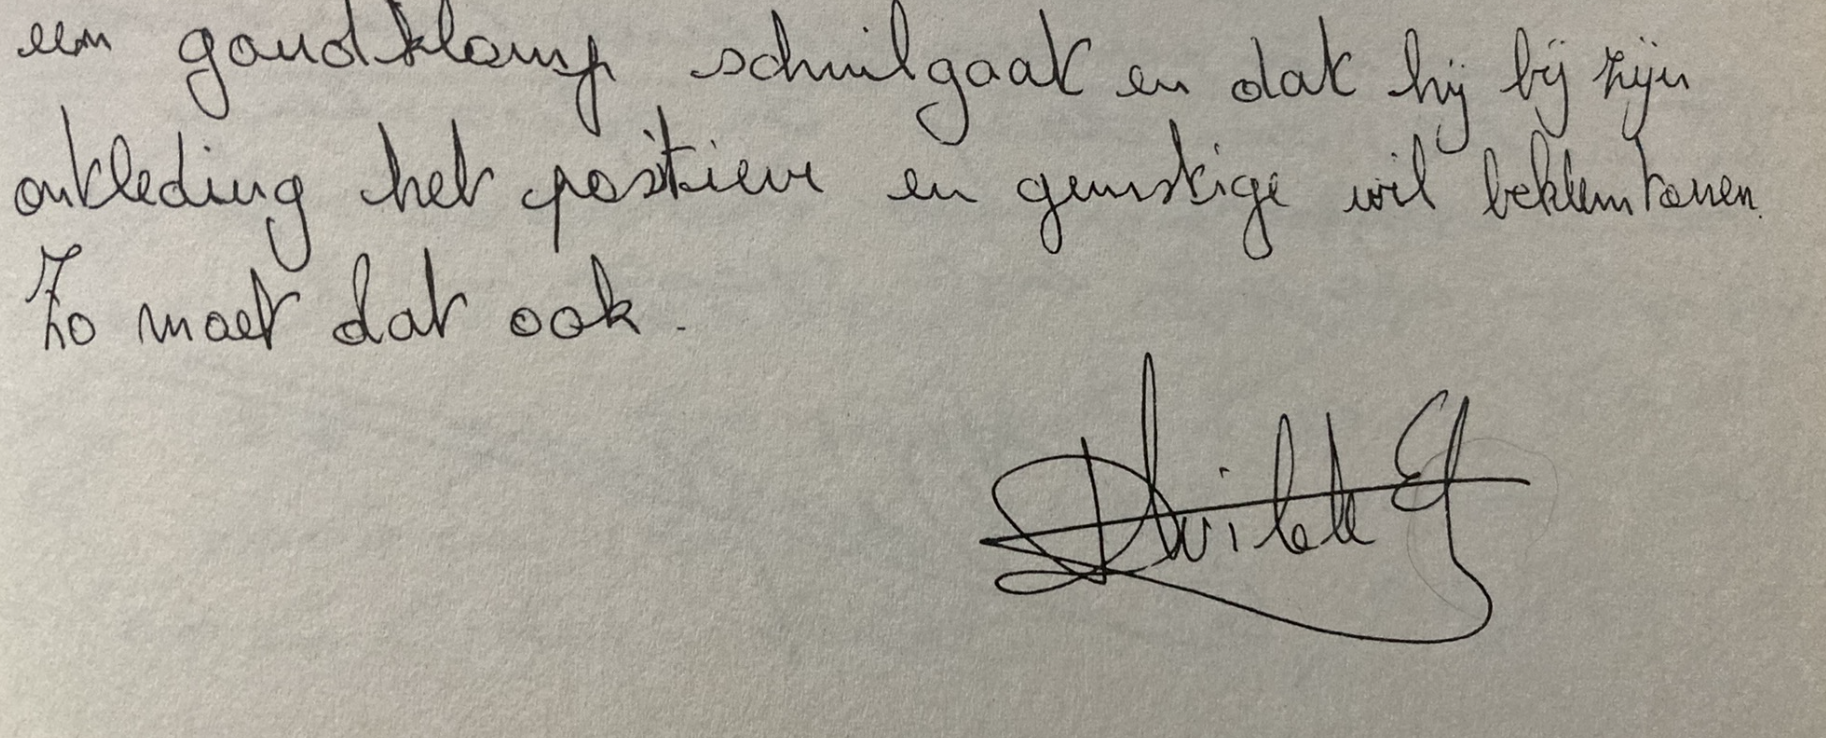 een goudklomp schuilgaat en dat hij bij zijn
ontleding het positieve en gunstige wil beklemtonen.
Zo moet dat ook.